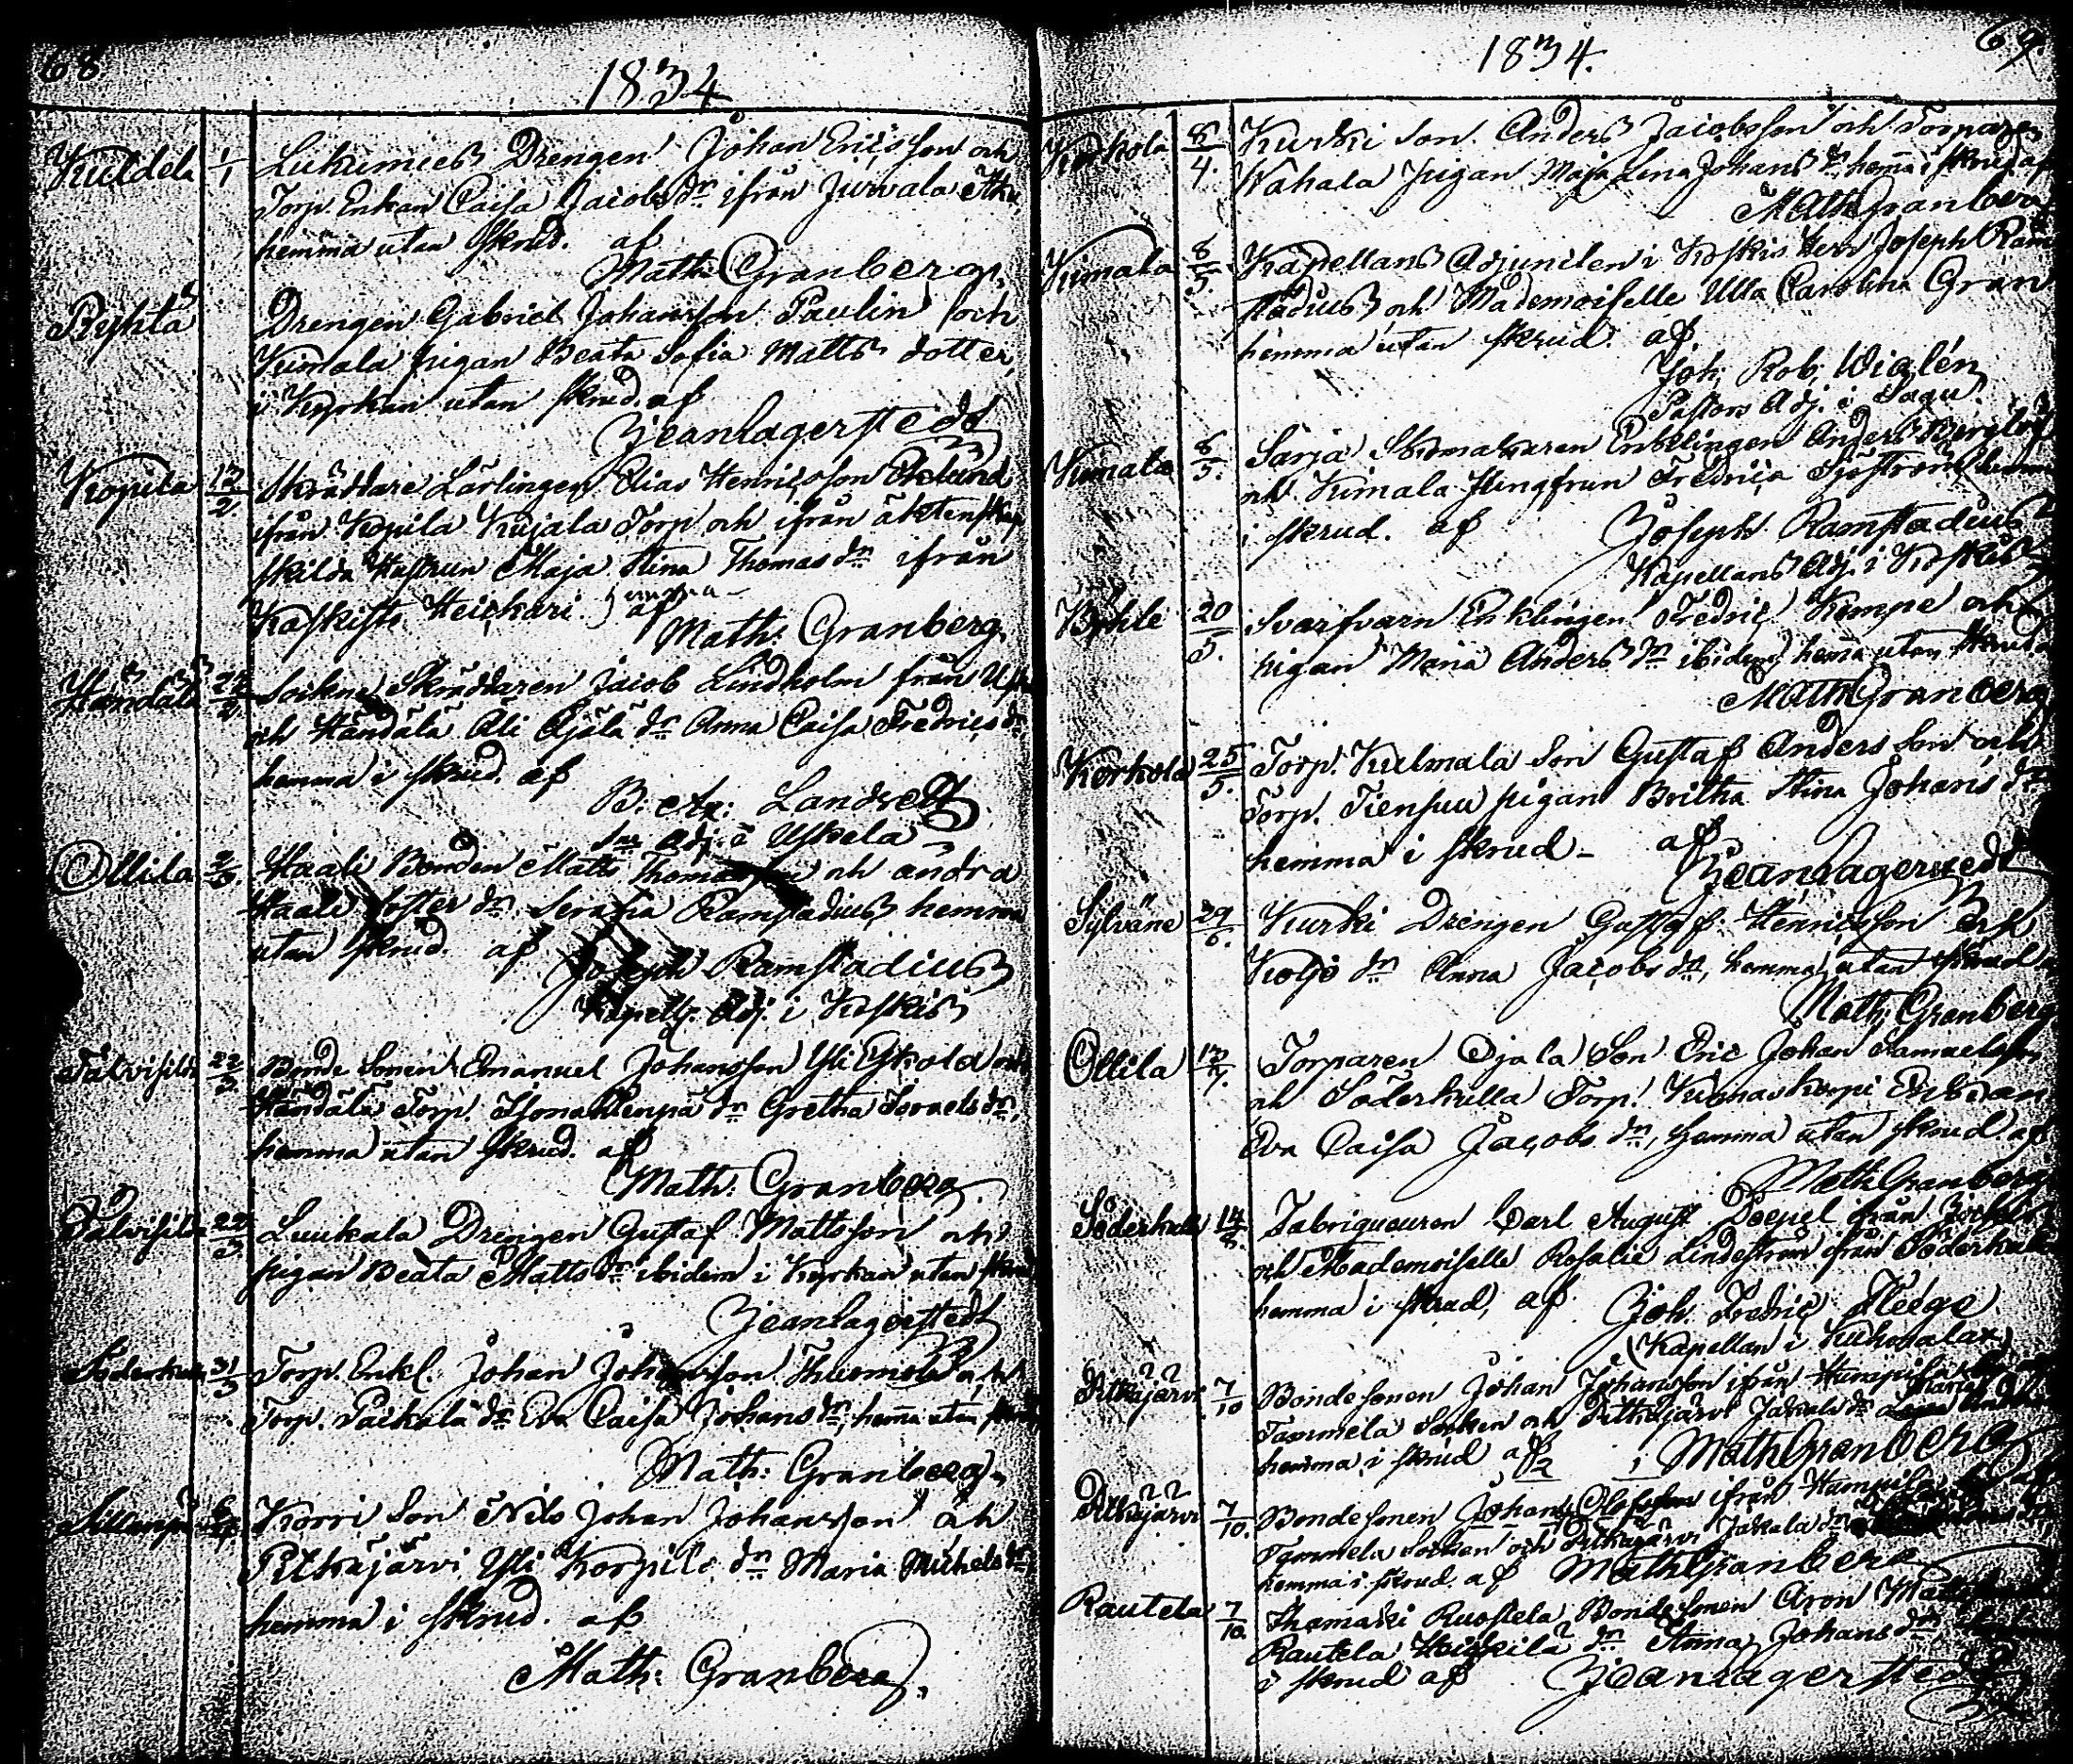 68
1834
Kuldela 1/1 Lukumees Drengen Johan Ericsson och
Torp. Enkan Caisa Jacobs dn ifrån Juvvala
hemma utan skrud. af
Math: Granberg.
Ryhtä Drengen Gabriel Johansson Paulin och
Kimala pigan Beata Sofia Matts dotter,
i Kyrkan utan skrud. af
Jean Lagerstedt
Kopila 12/2 Skräddare Lärlingen Elias Henricsson Eklund
ifrån Kopila Kujala Torp och ifrån äktenskap
skilda Hustrun Maja Stina Thomas dn ifrån
Koskisto Heickari hemma af
Math: Granberg.
Händälä 22/2 Sockne Skräddaren Jacob Lindholm från
och Händälä Ali Äjälä dn Anna Caisa Fredrics dn
hemma i skrud. af
B: Landvedt
Adj. i Uskela
Ollila Haali Bonden Matts Thomasson och andra
Haali Soster dn Serafia Ramstadius hemma
utan skrud. af
Joseph Ramstadius
Kapells. Adj. i Koskis
Talvisilda 22/3 Bonde Sonen Emanuel Johansson Yli Eskola och
Händälä Torp. dn Gretha Israels dn,
hemma utan skrud. af
Math: Granberg.
Talvisilda 22/3 Luukala Drengen Gustaf Mattsson och
pigan Beata Matts dn ibidem i Kyrkan utan skrud
Jean Lagerstedt
Söderkulla 31/3 Torp. Enkl. Johan Johansson Thuomola och
Torp. Paikala dn Eva Caisa Johans dn, hemma utan skrud
Math: Granberg.
Korri Son Nils Johan Johansson och
Pitkäjärvi Yli Korpilo dn Maria Michels dn
hemma i skrud. af
Math: Granberg.
69
1834.
Korkola 8/4. Kurki Son Anders Jacobsson och Torpare
Wähala pigan Maja Lena Johans dn hemma i skrud af
Math Granberg
Kimala 8/5. Kapellans Adjuncten i Koskis Herr Joseph Ram
stadius och Mademoiselle Ulla Carolina Gran
hemma utan skrud. af.
Joh; Rob; Widlén
Pastors Adj. i Sagu.
Kimala 8/5. Särjä Skomakaren Enklingen Anders Berglöf
och Kimala Jungfrun Fredrica Sjöström, hemma
i skrud. af Joseph Ramstadius
Kapellans Adj. i Koskis
Kyhlé 20/5. Svarfvarn Enklingen Fredric Kempe och
pigan Maria Anders dn ibidem hemma utan skrud
Math Granberg
Korkola 25/5. Torp. Kulmala Son Gustaf Anders Son och
Torp. Tiensuu pigan Britha Stina Johans dn
hemma i skrud - af
Jean Lagerstedt
Sylväne 29/6. Kurki Drengen Gustaf Henricsson och
Kotjo dn Anna Jacobs dn, hemma utan skrud
Math: Granberg
Ollila 13/7. Torparen Ojala Son Eric Johan Samuelsson
och Söderkulla Torp. Kuonaskorpi Enkan
Eva Caisa Jacobs dn, hemma utan skrud. af
Math Granberg
Söderkulla 14/8. Fabriqueuren Carl August Doepel från
och Mademoiselle Rosalie Lindeström ifrån Söderkulla
hemma i skrud, af Joh. Fredric Heégo
(Kapellan i Kuhmalax)
Pitkäjärvi 7/10 Bondesonen Johan Johansson ifrån Humpila
Tammela Socken och Pitkäjärvi Jakala dn
hemma i skrud af Math Granberg
Pitkäjärvi 7/10. Bondesonen Johan Olofsson ifrån Humpila
Tammela Socken och Pitkäjärvi Jakala dn
hemma i skrud. af Math Granberg
Rautela 7/10 Thamaki Ruostela Bondesonen Aron
Rautela Heickilä dn Anna Johans dn
i skrud af Jean Lagerstedt